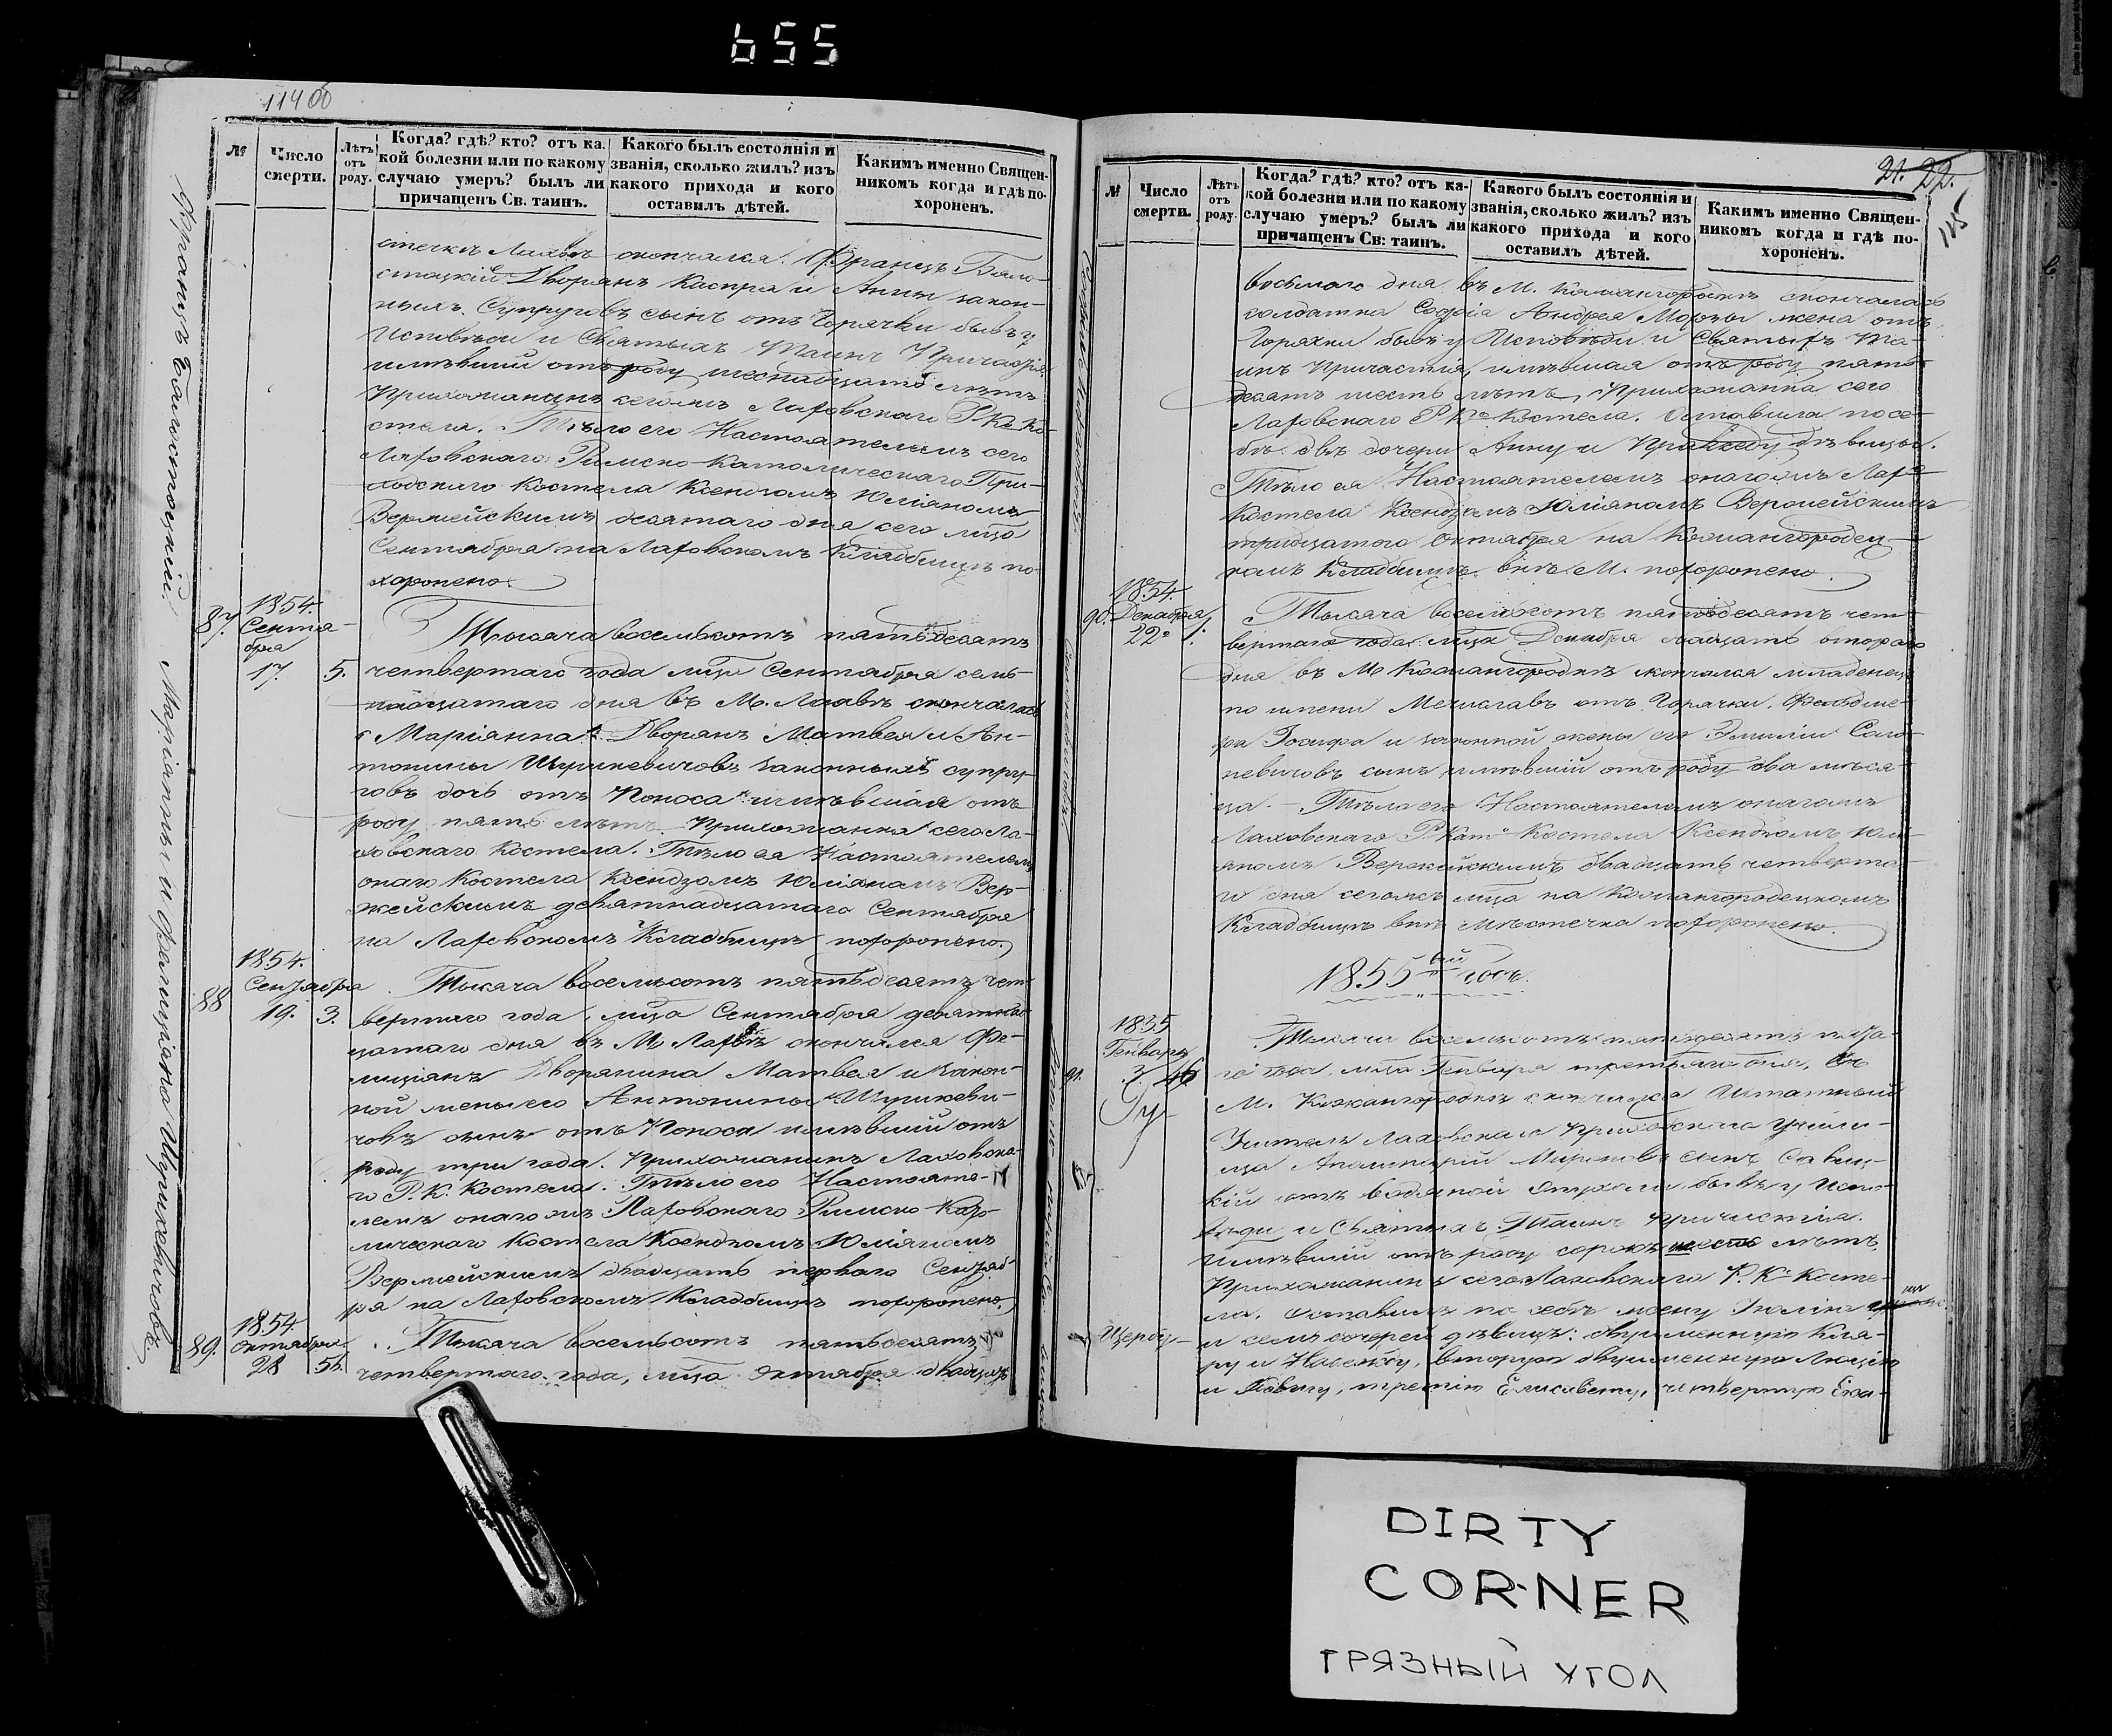 655
114 об
№
Число смерти.
Лѣтъ отъ роду.
Когда? гдѣ? кто? отъ ка-
кой болезни или по какому
случаю умеръ? былъ ли
причащенъ Св. таинъ.
Какого былъ состоянія и
званія, сколько жилъ? изъ
какого прихода и кого
оставилъ дѣтей.
Какимъ именно Священ-
никомъ когда и гдѣ по-
хороненъ.
стечкѣ Лахвѣ скончался Францъ Бяло-
стоцкій Дворянъ Каспра и Анны закон-
ныхъ Супруговъ сынъ отъ Горячки бывъ у
Исповѣди и Святыхъ Таинъ Причастія
имѣвший отъ роду шеснадцать лѣтъ
Прихожанинъ сегожъ Лаховскаго Р. К. Ко-
стела. Тѣло его Настоятелемъ сего
Лаховскаго Римско-Католическаго При-
ходскаго Костела Ксендзомъ Юліяномъ
десятаго дня сего мца
Сентября на Лаховскомъ Кладбищѣ по-
хоронено.
87.
1854.
Сентя-
бря
17.
5.
Тысяча восемьсотъ пятьдесятъ
четвертаго года мца Сентября семь-
надцатаго дня въ М. Лахвѣ скончалась
Маріанна Дворянъ Матвея и Ан-
тонины законныхъ супру-
говъ дочь отъ Поноса имѣвшая отъ
роду пять лѣтъ. Прихожанка сего Ла-
ховскаго Костела. Тѣло ея Настоятелемъ
онаго Костела Ксендзомъ Юліяномъ Вер-
жейскимъ девятнадцатаго Сентября
на Лаховскомъ Кладбищѣ похоронено.
88
1854.
Сентября
19.
3.
Тысяча восемьсотъ пятьдесятъ чет-
вертаго года, мца Сентября девятнад-
цатаго дня въ М. Лахвѣ скончался Фе-
лиціянъ Дворянина Матвея и закон-
ной жены его Антонины
сынъ отъ Поноса имѣвший отъ
роду три года. Прихожанинъ Лаховска-
го Р. К. Костела. Тѣло его Настояте-
лемъ онагожъ Лаховскаго Римско Като-
лическаго Костела Ксендзомъ Юліяномъ
двадцать перваго Сентяб-
ря на Лаховскомъ Кладбищѣ похоронено.
89.
1854.
Октября
28
56.
Тысяча восемьсотъ пятьдесятъ
четвертаго года, мца Октября двадцать
21. 22.
115
№
Число смерти.
Лѣтъ отъ роду.
Когда? гдѣ? кто? отъ ка-
кой болезни или по какому
случаю умеръ? былъ ли
причащенъ Св: таинъ.
Какого былъ состоянія и
званія, сколько жилъ? изъ
какого прихода и кого
оставилъ дѣтей.
Какимъ именно Священ-
никомъ когда и гдѣ по-
хороненъ.
восьмаго дня въ М. Кожангородкѣ скончалась
солдатка Софія Андрея Морозы жена отъ
Горячки бывъ у Исповѣди и Святыхъ Та-
инъ Причастія, имѣвшая отъ роду пять-
десятъ шесть лѣтъ, Прихожанка сего
Лаховскаго Р. К. Костела. Оставила по се-
бѣ двѣ дочери Анну и Пракседу дѣвицы.
Тѣло ея Настоятелемъ онагожъ Лах.
Костела Ксендзомъ Юліяномъ
тридцатаго Октября на Кожангородец-
комъ Кладбищѣ внѣ М. похоронено.
90.
1854.
Декабря
22.
Тысяча восемьсотъ пятьдесятъ чет-
вертаго года мца Декабря двадцать втораго
дня въ М. Кожангородкѣ скончался младенецъ
по имени Мечиславъ отъ Горячки. Фельдше-
ра Іосифа и законной жены его Эмиліи
сынъ имѣвший отъ роду два мѣся-
ца. Тѣло его Настоятелемъ онагожъ
Лаховскаго Р. Кат. Костела Ксендзомъ Юлі-
яномъ Вержейскимъ двадцать четверта-
го дня сегожъ мца на Кожангородецкомъ
Кладбищѣ внѣ мѣстечка похоронено.
1855 годъ.
91.
1855
Генваря
3.
46
Тысяча восемьсотъ пятьдесятъ пята-
го года, мца Генваря третьяго дня, въ
М. Кожангородкѣ скончался Штатный
Учитель Лаховскаго Приходскаго Учили-
ща сынъ Савиц-
кій отъ водяной опухоли бывъ у Испо-
вѣди и Святыхъ Таинъ Причастія.
Имѣвший отъ роду сорокъ шесть лѣтъ,
Прихожанинъ сего Лаховскаго Р. К. Косте-
ла. Оставилъ по себѣ жену
и семь дочерей дѣвицъ: двуименную Кля-
ру и вторую двуименную Люцію
и третію Елисавету, четвертую Ека-
DIRTY
CORNER
ГРЯЗНЫЙ УГОЛ